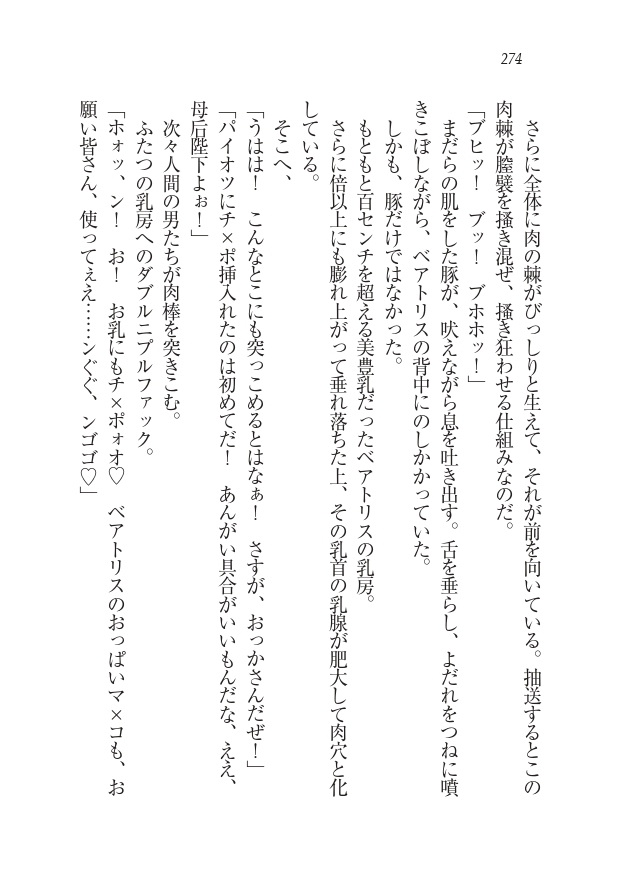 274
さらに全体に肉の棘がびっしりと生えて、それが前を向いている。抽送するとこの
肉棘が膣襞を掻き混ぜ、掻き狂わせる仕組みなのだ。
「ブヒッ！　ブッ！　ブホホッ！」
まだらの肌をした豚が、吠えながら息を吐き出す。舌を垂らし、よだれをつねに噴
きこぼしながら、ベアトリスの背中にのしかかっていた。
しかも、豚だけではなかった。
もともと百センチを超える美豊乳だったベアトリスの乳房。
さらに倍以上にも膨れ上がって垂れ落ちた上、その乳首の乳腺が肥大して肉穴と化
している。
そこへ、
「うはは！　こんなとこにも突っこめるとはなぁ！　さすが、おっかさんだぜ！」
「パイオツにチ×ポ挿入れたのは初めてだ！　あんがい具合がいいもんだな、ええ、
母后陛下よぉ！」
次々人間の男たちが肉棒を突きこむ。
ふたつの乳房へのダブルニプルファック。
「ホォッ、ン！　お！　お乳にもチ×ポォオ♡　ベアトリスのおっぱいマ×コも、お
願い皆さん、使ってぇえ……ンぐぐ、ンゴゴ♡」